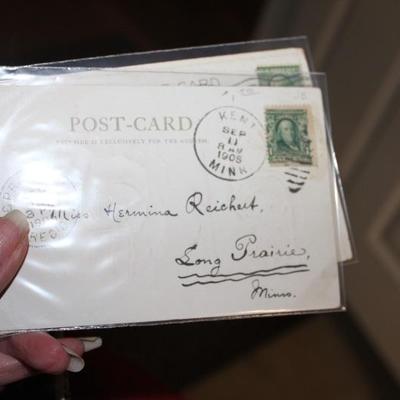 CARD
POST-CARD
THIS SIDE IS EXCLUSIVELY FOR THE ADDRESS.
KENT
SEP
11
8 AM
1905
MINN
REC'D
Miss Hermina Reichert,
Long Prairie,
Minn.